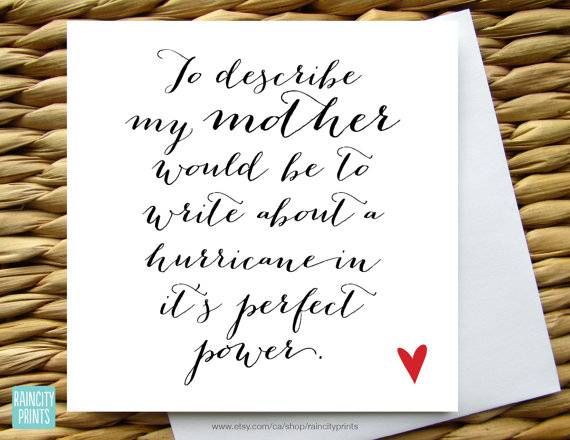 To describe
my mother
would be to
write about a
hurricane in
it's perfect
power.
RAINCITY
PRINTS
www.etsy.com/ca/shop/raincityprints